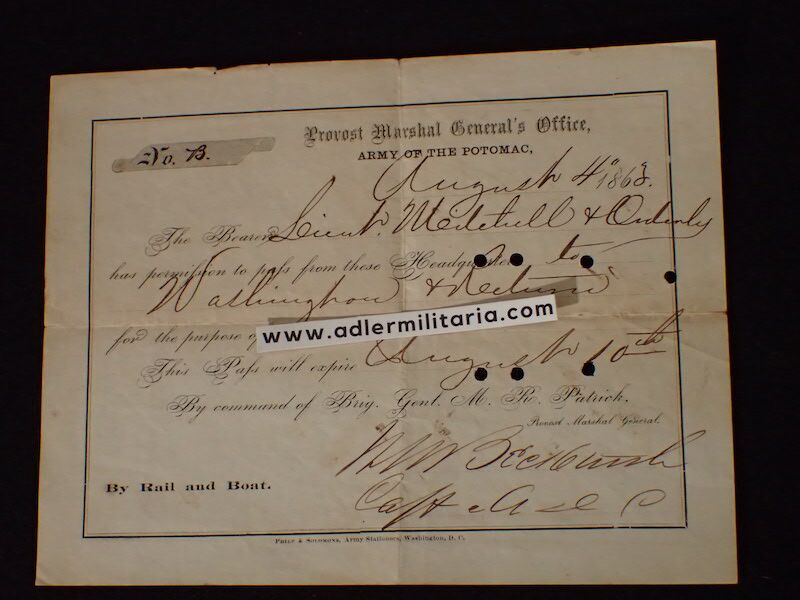 Provost Marshal General's Office,
No. B.
ARMY OF THE POTOMAC,
August 4" 1863.
The Bearer Lieut. Mitchell & Orderly
has permission to pass from these Headquarters to
Washington & Return
www.adlermilitaria.com
for the purpose of
This Pass will expire August 10th
By command of Brig. Genl. M. R. Patrick,
Provost Marshal General.
Capt & A d C
By Rail and Boat.
PHILP & SOLOMONS, Army Stationers, Washington, D. C.